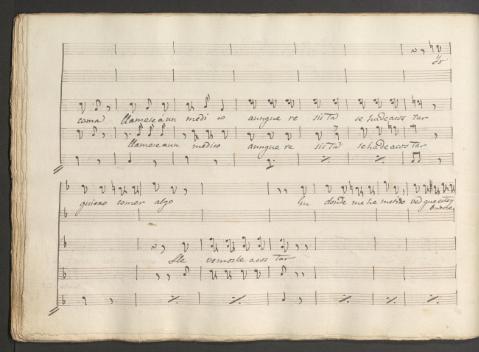 Yo
coma llamese a un medi co aunque re sista se ha de acos tar
llamese a un medico aunque re sista se ha de acos tar
quiero comer algo En donde me he metido ved que estoy
bueno
lle vemosle acos tar